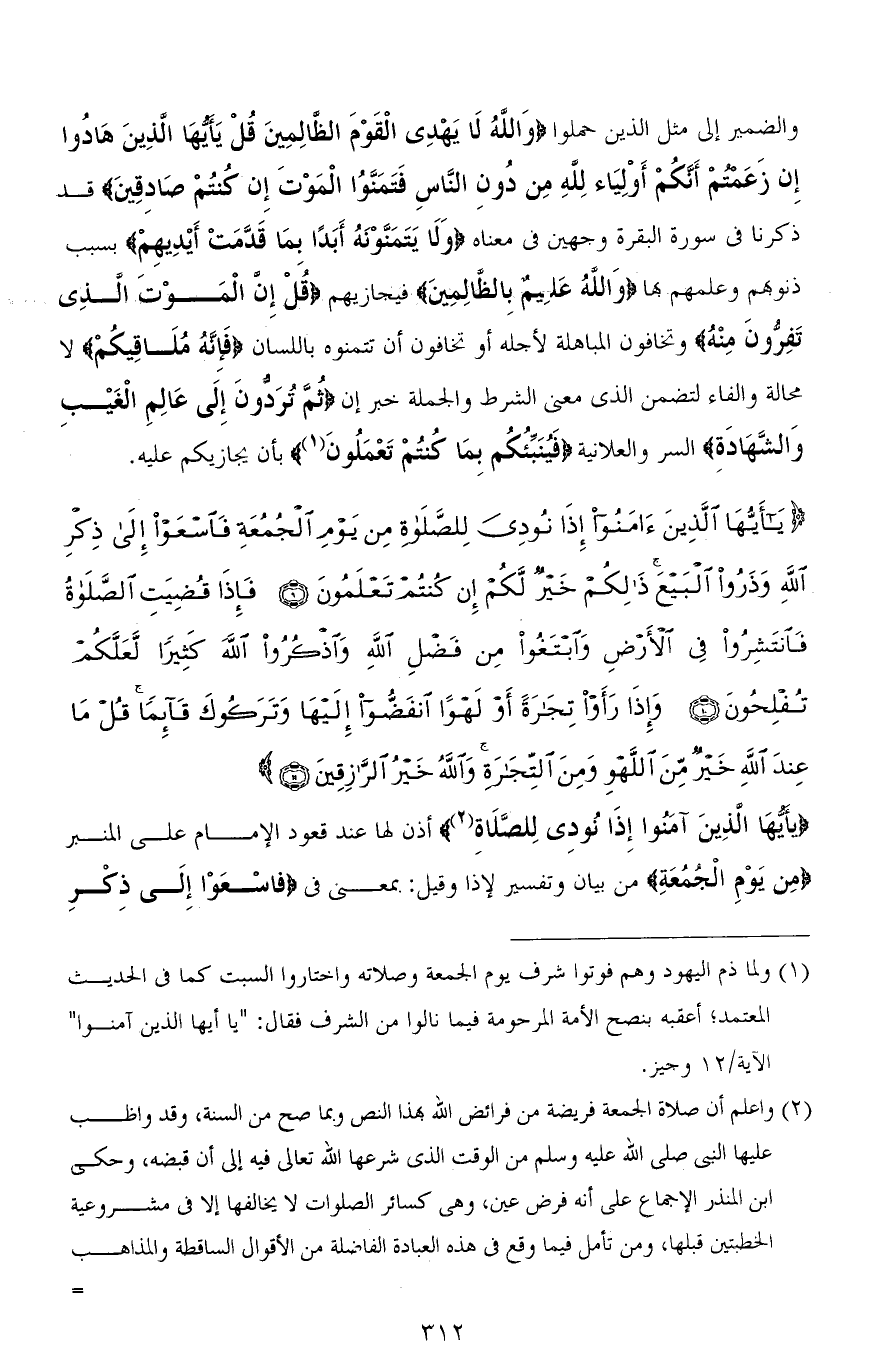 والضمير إلى مثل الذين حملوا ﴿وَاللَّهُ لَا يَهْدِى الْقَوْمَ الظَّالِمِينَ قُلْ يَأَيُّهَا الَّذِينَ هَادُوا
إِن زَعَمْتُمْ أَنَّكُمْ أَوْلِيَاء لِلَّهِ مِن دُونِ النَّاسِ فَتَمَنَّوُا الْمَوْتَ إِن كُنتُمْ صَادِقِينَ﴾ قد
ذكرنا فى سورة البقرة وجهين فى معناه ﴿وَلَا يَتَمَنَّوْنَهُ أَبَدًا بِمَا قَدَّمَتْ أَيْدِيهِمْ﴾ بسبب
ذنوبهم وعلمهم بها ﴿وَاللَّهُ عَلِيمٌ بِالظَّالِمِينَ﴾ فيجازيهم ﴿قُلْ إِنَّ الْمَوْتَ الَّذِى
تَفِرُّونَ مِنْهُ﴾ وتخافون المباهلة لأجله أو تخافون أن تتمنوه باللسان ﴿فَإِنَّهُ مُلَاقِيكُمْ﴾ لا
محالة والفاء لتضمن الذى معنى الشرط والجملة خبر إن ﴿ثُمَّ تُرَدُّونَ إِلَى عَالِمِ الْغَيْبِ
وَالشَّهَادَةِ﴾ السر والعلانية ﴿فَيُنَبِّئُكُم بِمَا كُنتُمْ تَعْمَلُونَ(١)﴾ بأن يجازيكم عليه.
﴿يَٰٓأَيُّهَا ٱلَّذِينَ ءَامَنُوٓا۟ إِذَا نُودِىَ لِلصَّلَوٰةِ مِن يَوْمِ ٱلْجُمُعَةِ فَٱسْعَوْا۟ إِلَىٰ ذِكْرِ
ٱللَّهِ وَذَرُوا۟ ٱلْبَيْعَ ۚ ذَٰلِكُمْ خَيْرٌ لَّكُمْ إِن كُنتُمْ تَعْلَمُونَ ۝٩ فَإِذَا قُضِيَتِ ٱلصَّلَوٰةُ
فَٱنتَشِرُوا۟ فِى ٱلْأَرْضِ وَٱبْتَغُوا۟ مِن فَضْلِ ٱللَّهِ وَٱذْكُرُوا۟ ٱللَّهَ كَثِيرًا لَّعَلَّكُمْ
تُفْلِحُونَ ۝١٠ وَإِذَا رَأَوْا۟ تِجَٰرَةً أَوْ لَهْوًا ٱنفَضُّوٓا۟ إِلَيْهَا وَتَرَكُوكَ قَآئِمًا ۚ قُلْ مَا
عِندَ ٱللَّهِ خَيْرٌ مِّنَ ٱللَّهْوِ وَمِنَ ٱلتِّجَٰرَةِ ۚ وَٱللَّهُ خَيْرُ ٱلرَّٰزِقِينَ ۝١١﴾
﴿يأَيُّهَا الَّذِينَ آمَنُوا إِذَا نُودِى لِلصَّلَاةِ(٢)﴾ أذن لها عند قعود الإمام على المنبر
﴿مِن يَوْمِ الْجُمُعَةِ﴾ من بيان وتفسير لإذا وقيل: بمعنى فى ﴿فَاسْعَوْا إِلَى ذِكْرِ
(١) ولما ذم اليهود وهم فوتوا شرف يوم الجمعة وصلاته واختاروا السبت كما فى الحديث
المعتمد؛ أعقبه بنصح الأمة المرحومة فيما نالوا من الشرف فقال: "يا أيها الذين آمنوا"
الآية/١٢ وجيز.
(٢) واعلم أن صلاة الجمعة فريضة من فرائض الله بهذا النص وبما صح من السنة، وقد واظب
عليها النبى صلى الله عليه وسلم من الوقت الذى شرعها الله تعالى فيه إلى أن قبضه، وحكى
ابن المنذر الإجماع على أنه فرض عين، وهى كسائر الصلوات لا يخالفها إلا فى مشروعية
الخطبتين قبلها، ومن تأمل فيما وقع فى هذه العبادة الفاضلة من الأقوال الساقطة والمذاهب
=
٣١٢